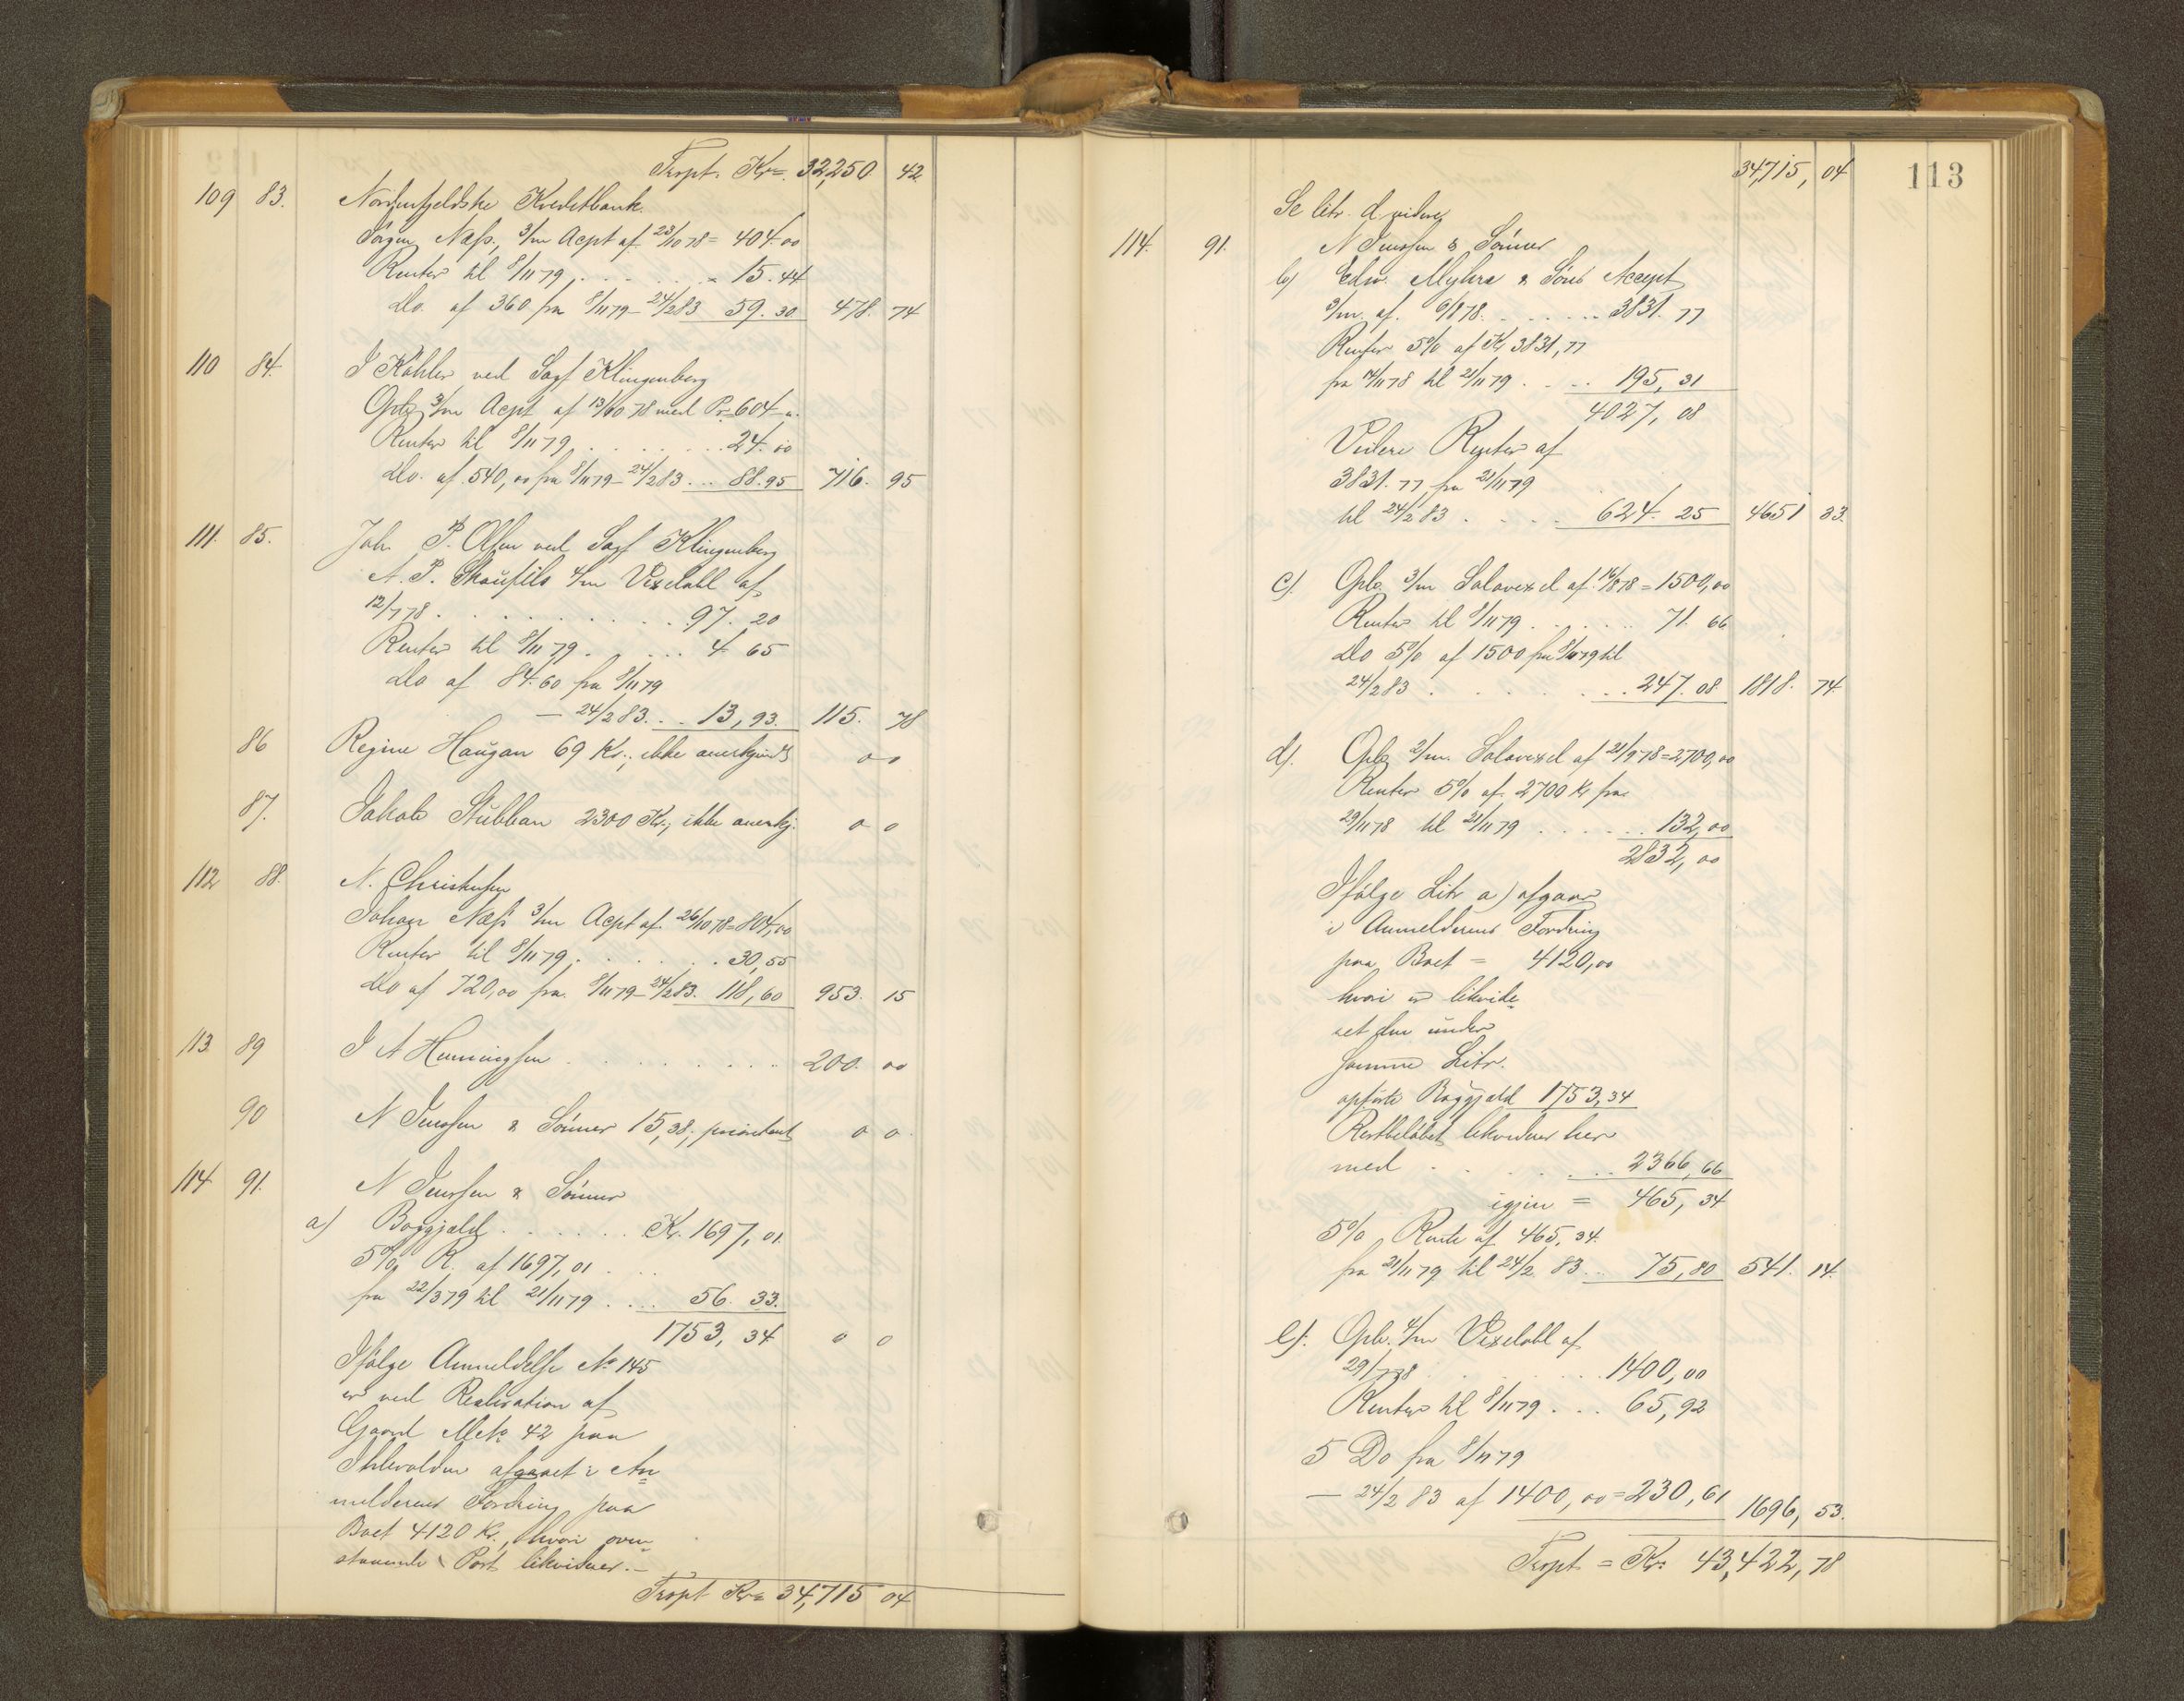 Trspt. Kr=. 32,250 42.
109 83. Nordenfjeldske Kreditbank.
Jørgen Næss, 3/m Acpt af 23/10 78 = 404.00
Renter til 8/11 79, . . . . . . 15.44
Do. af 360 fra 8/11 79 - 24/2 83 59.30 478. 74
110 84. J Köhler ved Sagf Klingenberg
Gpb 3/m Acpt af 13/10 78 med Pr. 604-"
Renter til 8/11 79, . . . . . . 24.00
Do. af 540,00 fra 8/11 79 - 24/2 83 . . . 88.95 716. 95
111. 85. Joh. P. Olsen ved Sagf Klingenberg
A. P. 4/m Vexelobl af
12/7 78 . . . . . . . . . . 97. 20
Renter til 8/11 79 . . . . . 4 65
Do af 84.60 fra 8/11 79
— 24/2 83 . . . 13,93. 115. 78
86 Regine Haugan 69 Kr., ikke anerkjendt 0 0
87. Jakob Stubban 2300 Kr., ikke anerkj. 0 0
112 88. N. Christensen
Johan Næss 3/m Acpt af 26/10 78 = 804,00
Renter til 8/11 79, . . . . . . 30,55
Do af 720,00 fra 8/11 79 - 24/2 83. 118,60 953. 15
113. 89 J A Henningsen . . . . . . . . 200. 00
90 N Jenssen & Sønner 15,38. prioritert 0 0.
114 91. N Jenssen & Sønner
a) Boggjæld . . . . . . Kr. 1697, 01.
5% R. af 1697,01 . . .
fra 22/3 79 til 21/11 79 . . . . 56. 33.
1753, 34 0 0
Ifølge Anmeldelse No 145
er ved Realisation af
Gaard Mtk. 42 paa
Ihlevolden afgaaet i An=
melderens Fordring paa
Boet 4120 Kr., hvori oven=
staaende Post likviderer. —
Trspt Kr= 34,715 04
113
34,715, 04
Se litr. d videre
114. 91. N Jenssen & Sønner
b) Edw. Myhre & Søns Accept
3/m. af 6/8 78. . . . . . . 3831. 77
Renter 5% af Kr 3831,77
fra 14/11 78 til 21/11 79 . . . . 195, 31
4027, 08
Videre Renter af
3831. 77 fra 21/11 79
til 24/2 83 . . . . 624. 25 4651 33.
c). Gpb. 3/m Solavexel af 16/8 78 = 1500,00
Renter til 8/11 79 . . . . . 71. 66
Do 5% af 1500 fra 8/11 79 til
24/2 83 . . . . . . . 247. 08. 1818. 74.
d). Gpb 2/m. Solavexel af 21/9 78 = 2700,00
Renter 5% af 2700 Kr fra
29/11 78 til 21/11 79 . . . . . . 132,00
2832,00
Ifølge Litr a) afgaar
i Anmelderens Fordring
paa Boet = 4120,00
hvori er likvide=
ret den under
samme Litr.
opførte Boggjæld 1753,34
Restbeløbet likviderer her
med . . . . . . . 2366,66
igjen = 465, 34
5% Rente af 465, 34.
fra 21/11 79 til 24/2 83 . . . 75,80 541. 14.
e). Gpb. 4/m Vexelobl af
29/7 78 . . . . . . 1400,00
Renter til 8/11 79 . . . 65,92
5 Do fra 8/11 79
— 24/2 83 af 1400,00 = 230,61 1696, 53.
Trspt = Kr= 43,422, 78